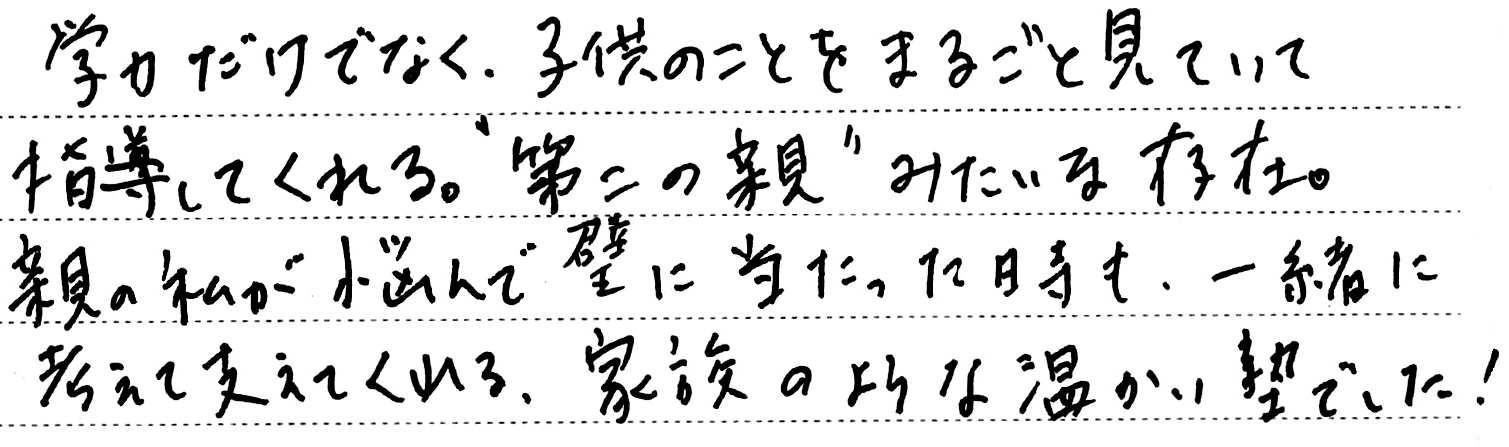 学力だけでなく、子供のことをまるごと見ていて
指導してくれる。“第二の親”みたいな存在。
親の私が悩んで壁に当たった時も、一緒に
考えて支えてくれる、家族のような温かい塾でした!